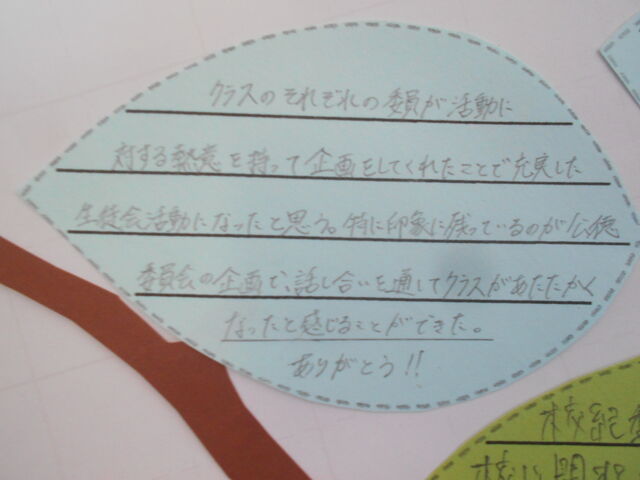 クラスのそれぞれの委員が活動に
対する熱意を持って企画をしてくれたことで充実した
生徒会活動になったと思う。特に印象に残っているのが公徳
委員会の企画で、話し合いを通してクラスがあたたかく
なったと感じることができた。
ありがとう!!
校紀